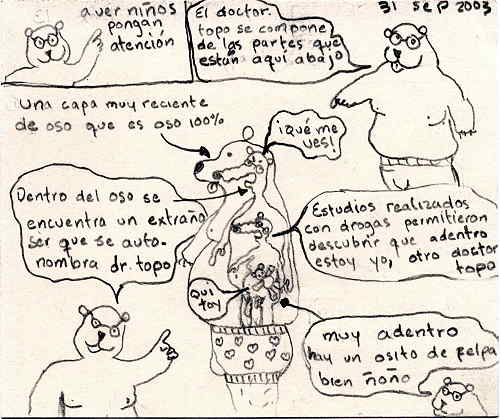 a ver niños
pongan
atención
El doctor
topo se compone
de las partes que
están aquí abajo
31 sep 2003
Una capa muy reciente
de oso que es oso 100%
¡Qué me
ves!
Dentro del oso se
encuentra un extraño
ser que se auto-
nombra dr. topo
Estudios realizados
con drogas permitieron
descubrir que adentro
estoy yo, otro doctor
topo
Qui
toy
muy adentro
hay un osito de felpa
bien ñoño